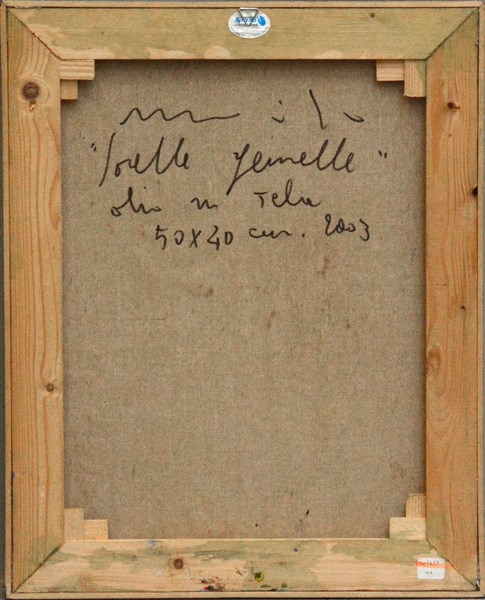 "Sorelle Gemelle"
olio su Tela
50x40 cm. 2003